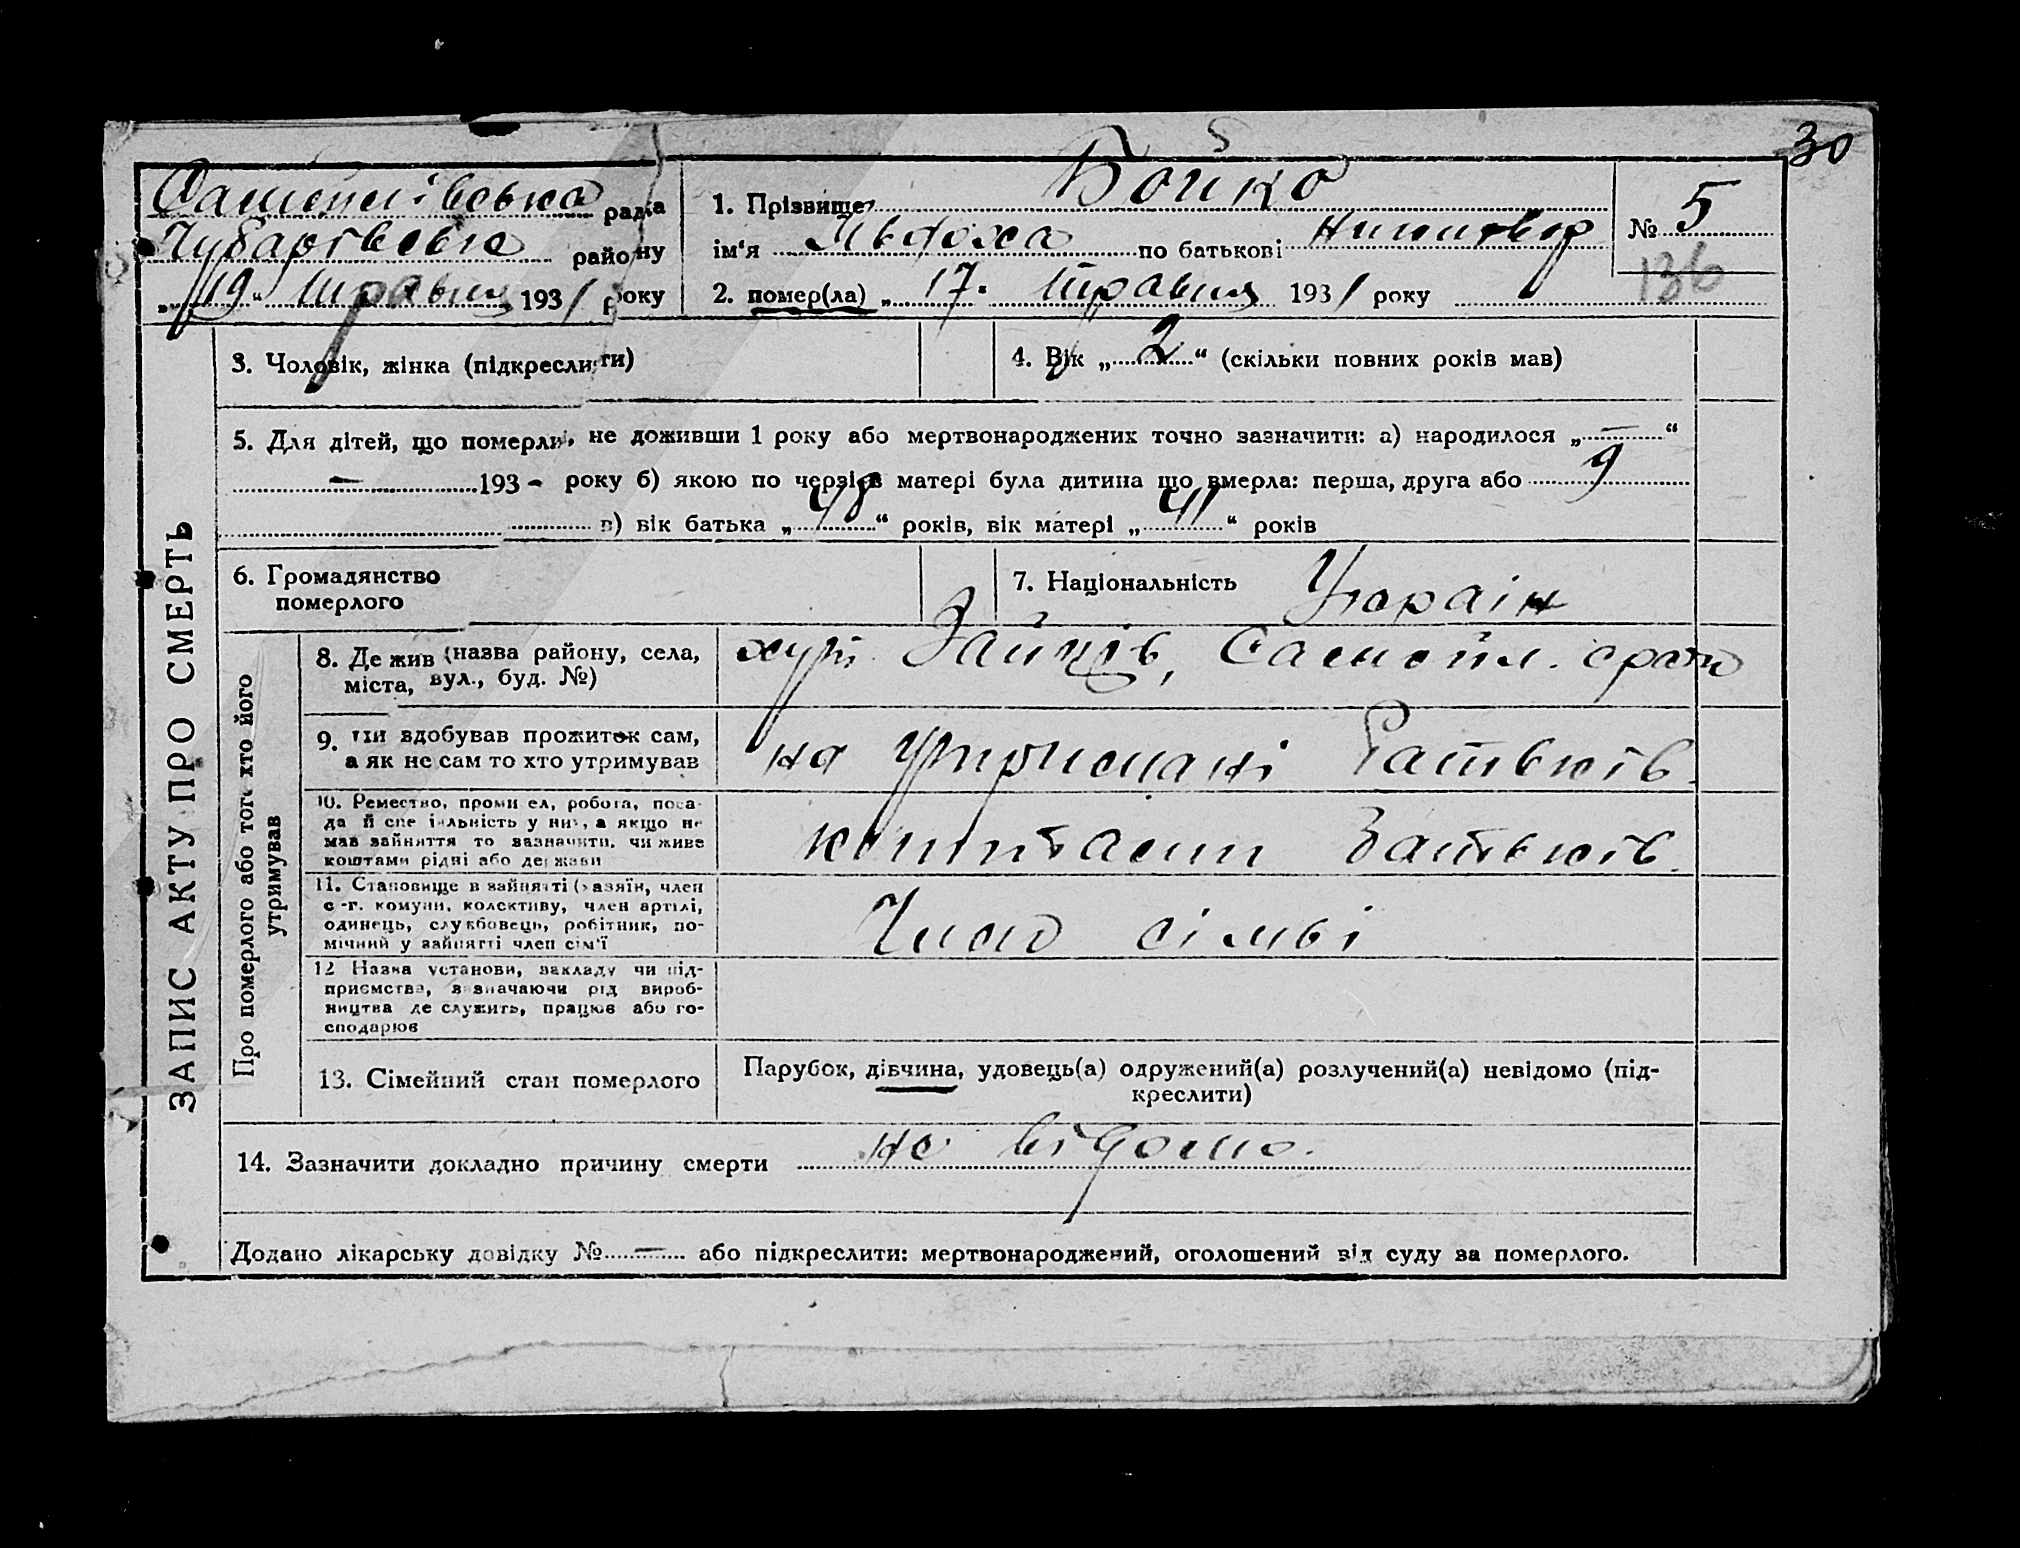 30
Самійлівська рада
Чубарівська району
„19“ травня 1931 року
1. Прізвище Бойко
ім'я Явдоха по батькові
2. помер(ла) „17. травня 1931 року
№ 5
136
3. Чоловік, жінка (підкреслити)
4. Вік „2“ (скільки повних років мав)
5. Для дітей, що померли, не доживши 1 року або мертвонароджених точно зазначити: а) народилося „—“
— 193- року б) якою по черзі в матері була дитина що вмерла: перша, друга або 9
в) вік батька „48“ років, вік матері „41“ років
6. Громадянство
померлого
7. Національність Україн
ЗАПИС АКТУ ПРО СМЕРТЬ
Про померлого або того хто його
утримував
8. Де жив (назва району, села,
міста, вул., буд. №)
хут. Зайців, Самійл.
9. Чи здобував прожиток сам,
а як не сам то хто утримував
на утриманні батьків.
10. Ремество, промисел, робота, поса-
да й спеціальність у них, а якщо не
мав зайняття то зазначити, чи живе
коштами рідні або держави
коштами батьків.
11. Становище в зайнятті (хазяїн, член
с.-г. комуни, колективу, член артілі,
одинець, службовець, робітник, по-
мічний у зайнятті член сім'ї
Член сімьі
12 Назва установи, закладу чи під-
приємства, зазначаючи рід вироб-
ництва де служить, працює або го-
сподарює
13. Сімейний стан померлого
Парубок, дівчина, удовець(а) одружений(а) розлучений(а) невідомо (під-
креслити)
14. Зазначити докладно причину смерти не відомо.
Додано лікарську довідку № — або підкреслити: мертвонароджений, оголошений від суду за померлого.